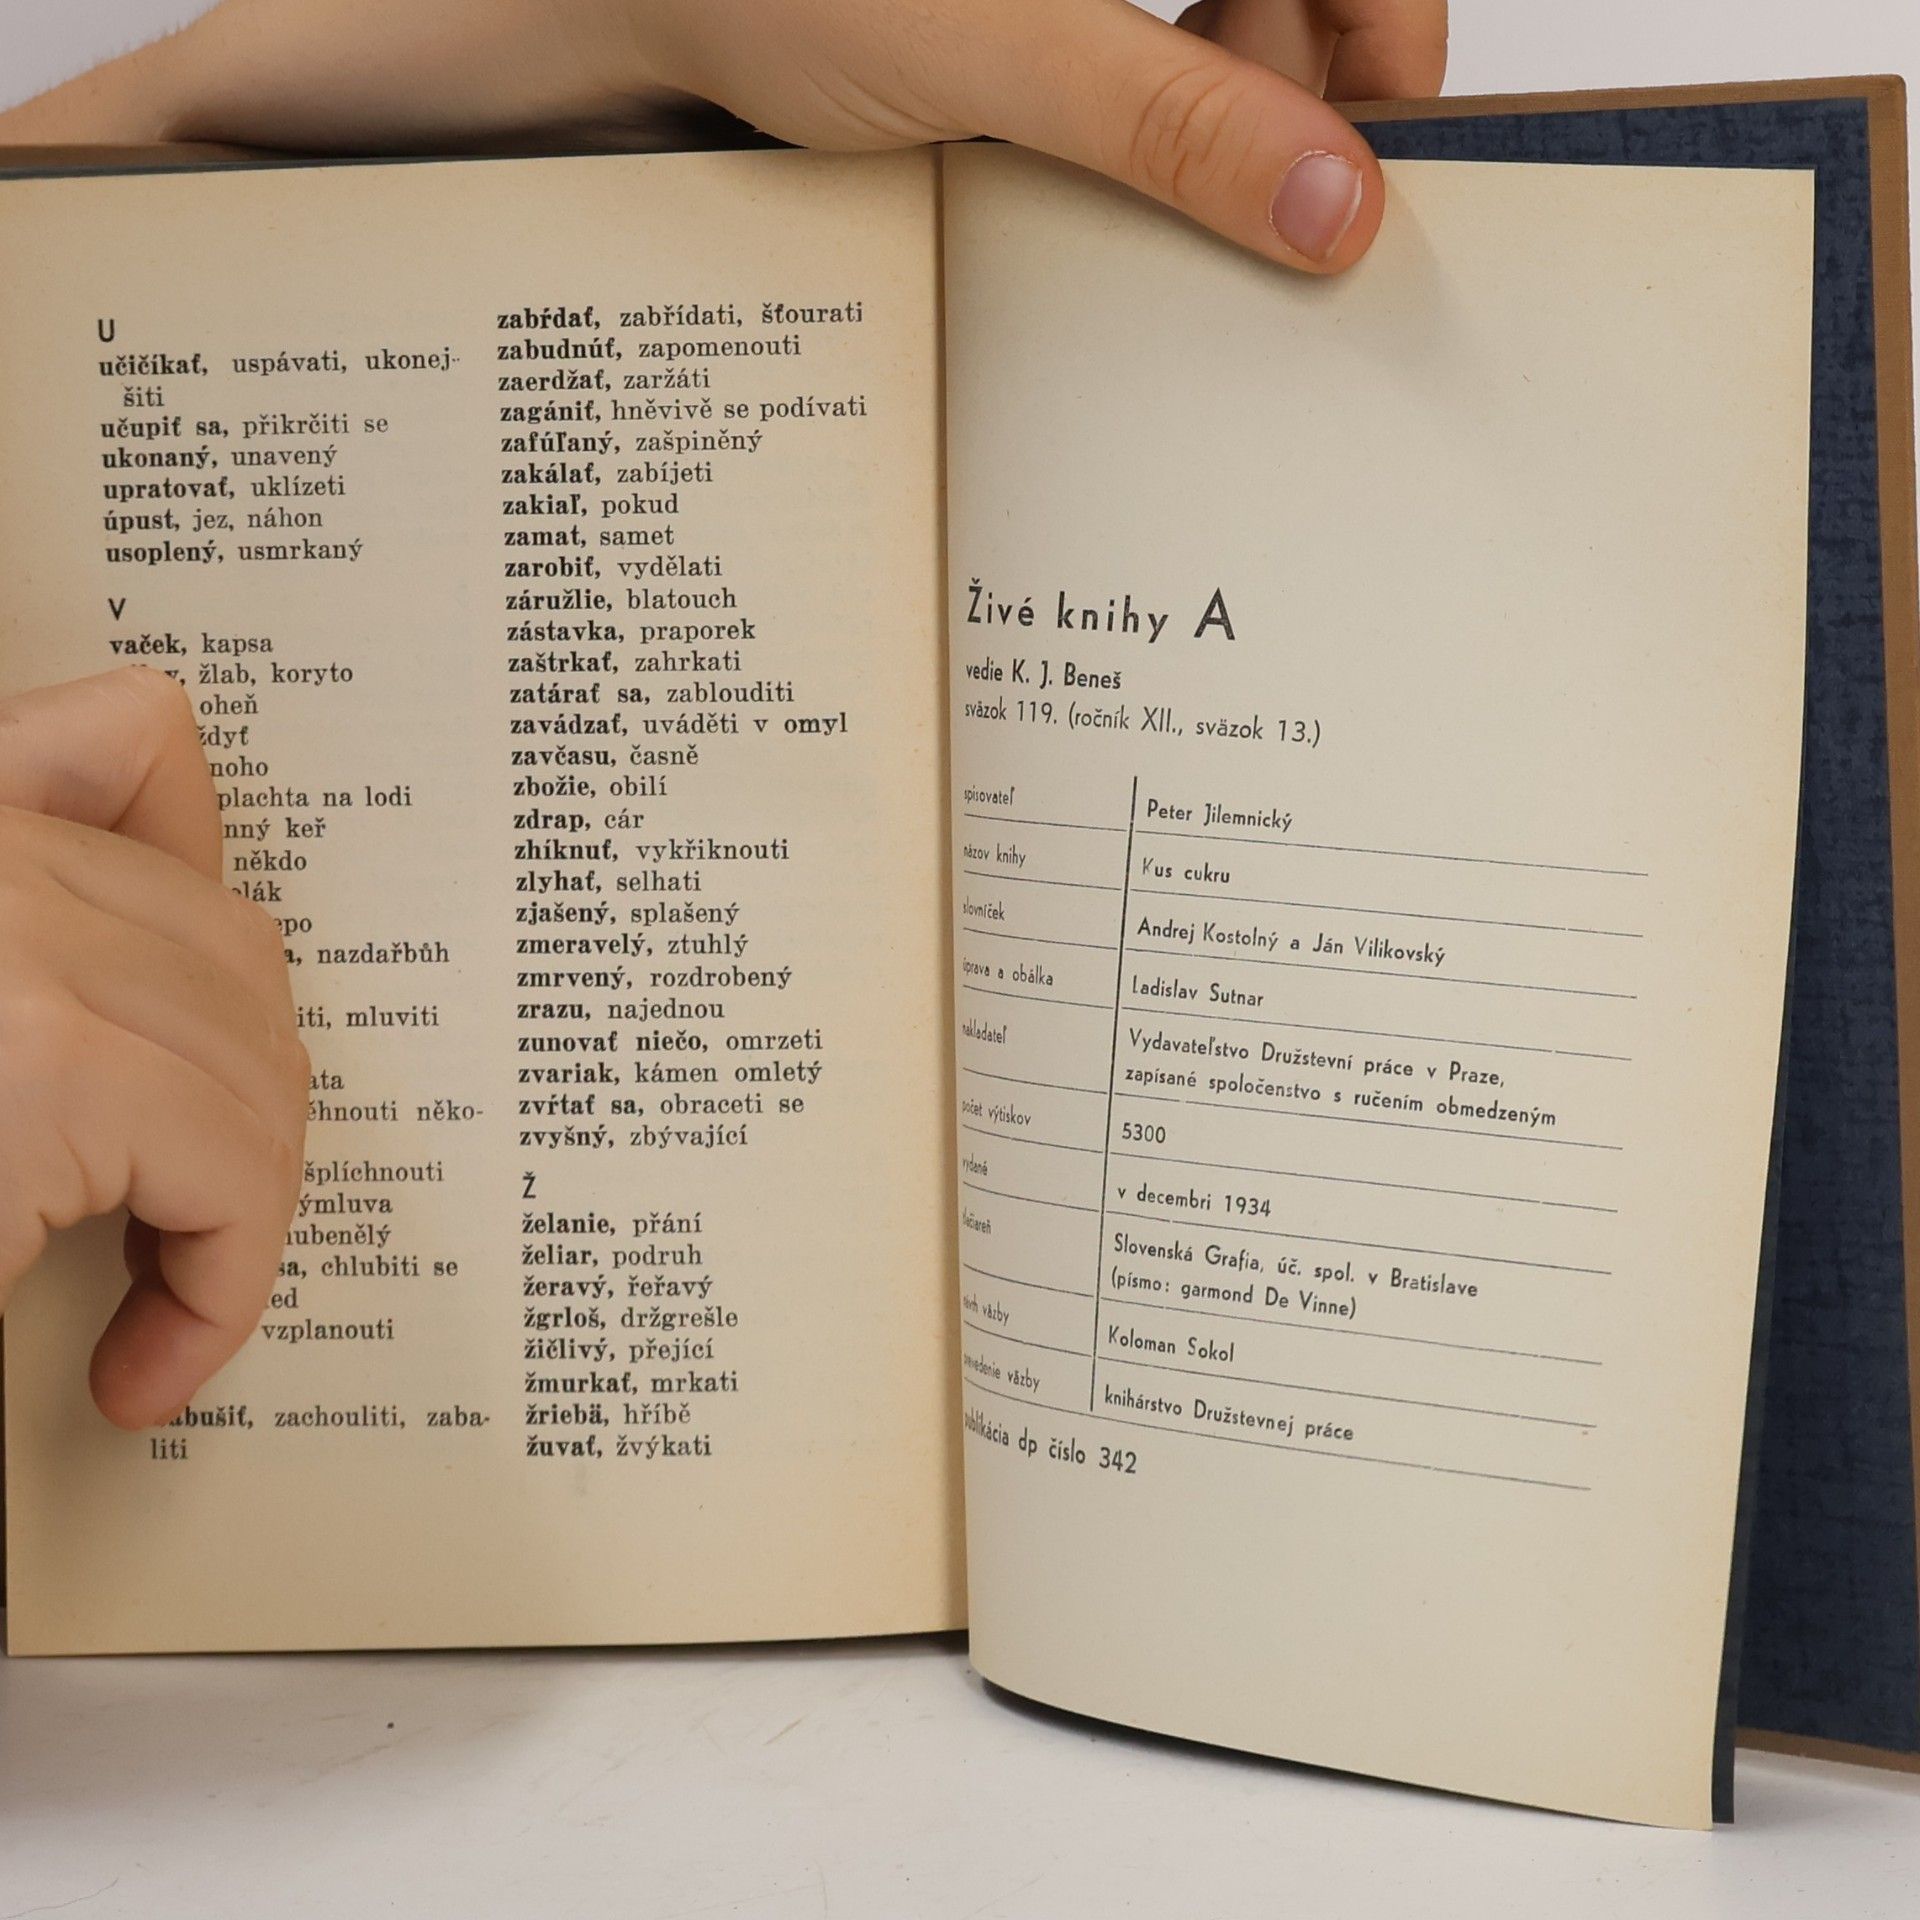 U
učičíkať, uspávati, ukonej-
šiti
učupiť sa, přikrčiti se
ukonaný, unavený
upratovať, uklízeti
úpust, jez, náhon
usoplený, usmrkaný
V
vaček, kapsa
žlab, koryto
oheň
plachta na lodi
keř
někdo
nazdařbůh
mluviti
něko-
vzplanouti
sa, chlubiti se
zachouliti, zaba-
liti
zabŕdať, zabřídati, šťourati
zabudnúť, zapomenouti
zaerdžať, zaržáti
zagániť, hněvivě se podívati
zafúľaný, zašpiněný
zakálať, zabíjeti
zakiaľ, pokud
zamat, samet
zarobiť, vydělati
záružlie, blatouch
zástavka, praporek
zaštrkať, zahrkati
zatárať sa, zablouditi
zavádzať, uváděti v omyl
zavčasu, časně
zbožie, obilí
zdrap, cár
zhíknuť, vykřiknouti
zlyhať, selhati
zjašený, splašený
zmeravelý, ztuhlý
zmrvený, rozdrobený
zrazu, najednou
zunovať niečo, omrzeti
zvariak, kámen omletý
zvŕtať sa, obraceti se
zvyšný, zbývající
Ž
želanie, přání
želiar, podruh
žeravý, řeřavý
žgrloš, držgrešle
žičlivý, přející
žmurkať, mrkati
žriebä, hříbě
žuvať, žvýkati
Živé knihy A
vedie K. J. Beneš
sväzok 119. (ročník XII., sväzok 13.)
spisovateľ Peter Jilemnický
názov knihy Kus cukru
slovníček Andrej Kostolný a Ján Vilikovský
úprava a obálka Ladislav Sutnar
nakladateľ Vydavateľstvo Družstevní práce v Praze,
zapísané spoločenstvo s ručením obmedzeným
počet výtiskov 5300
vydané v decembri 1934
tlačiareň Slovenská Grafia, úč. spol. v Bratislave
(písmo: garmond De Vinne)
návrh väzby Koloman Sokol
prevedenie väzby knihárstvo Družstevnej práce
publikácia dp číslo 342